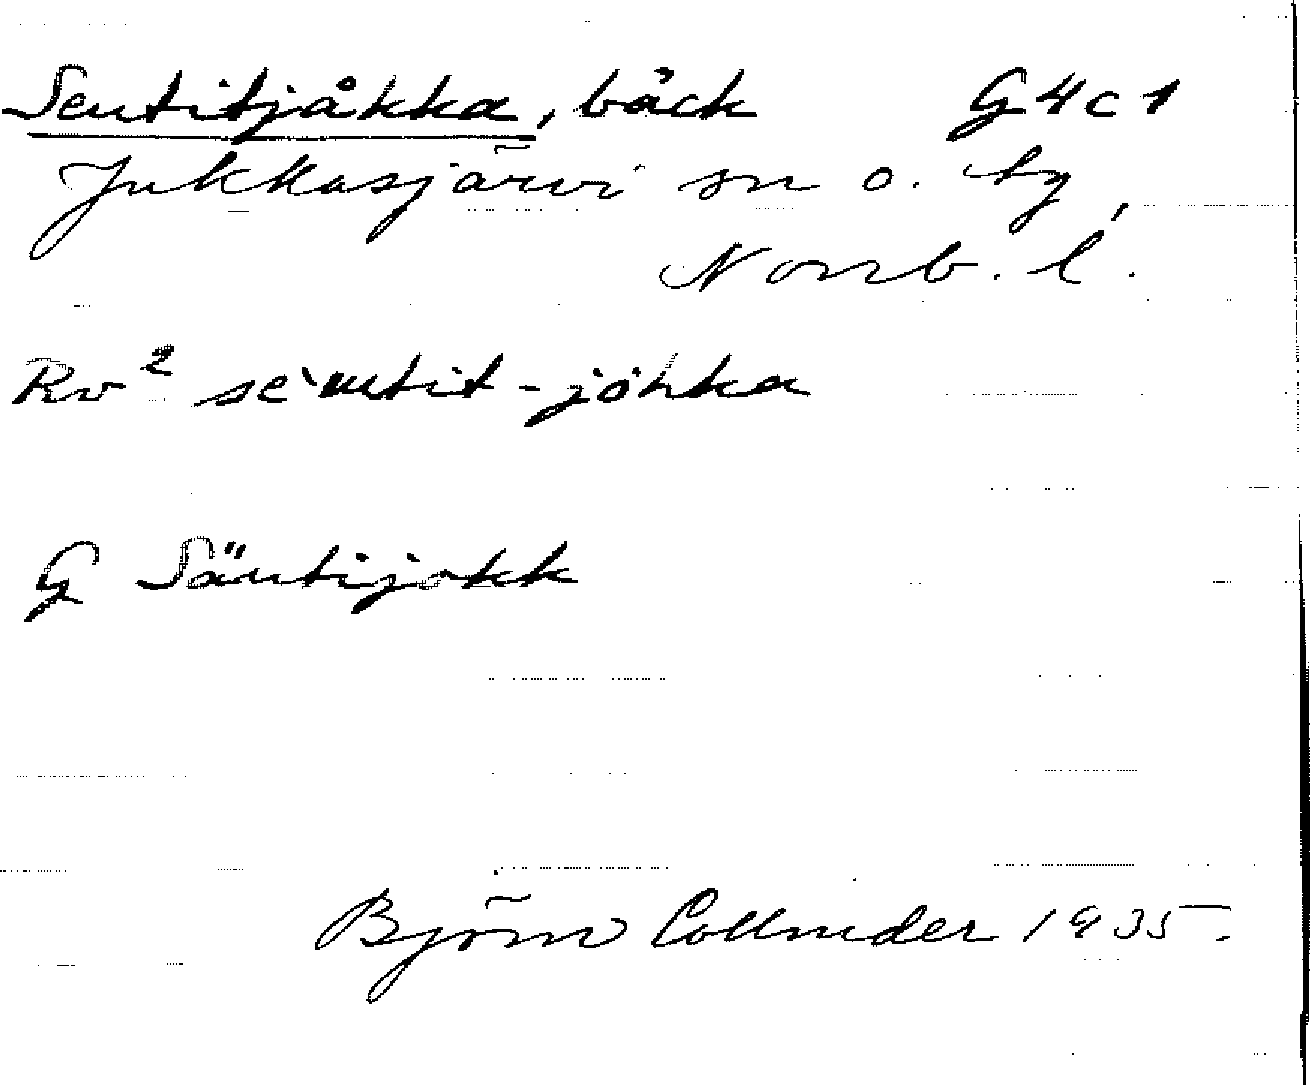 Seutitjåkka, bäck G4c1
Jukkasjärvi sn o. by,
Norrb. l.
Rv² -jòhka
G Säutijokk
Björn Collinder 1935.